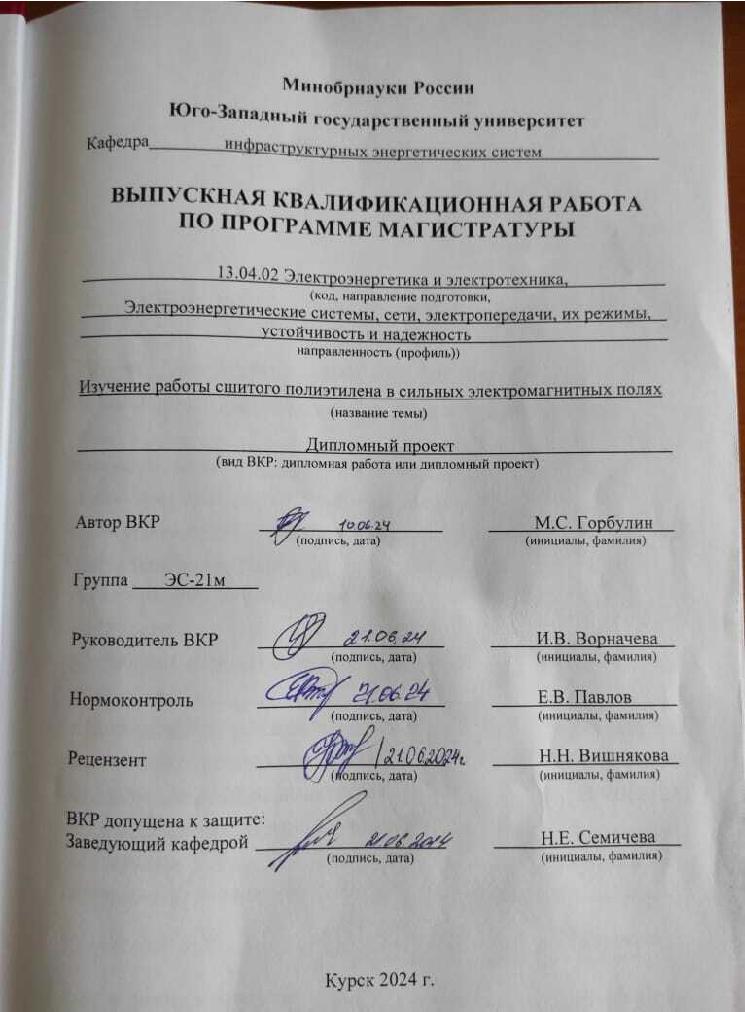 Минобрнауки России
Юго-Западный государственный университет
Кафедра инфраструктурных энергетических систем
ВЫПУСКНАЯ КВАЛИФИКАЦИОННАЯ РАБОТА
ПО ПРОГРАММЕ МАГИСТРАТУРЫ
13.04.02 Электроэнергетика и электротехника,
(код, направление подготовки,
Электроэнергетические системы, сети, электропередачи, их режимы,
устойчивость и надежность
направленность (профиль))
Изучение работы сшитого полиэтилена в сильных электромагнитных полях
(название темы)
Дипломный проект
(вид ВКР: дипломная работа или дипломный проект)
Автор ВКР 10.06.24 М.С. Горбулин
(подпись, дата) (инициалы, фамилия)
Группа ЭС-21м
Руководитель ВКР 21.06.24 И.В. Ворначева
(подпись, дата) (инициалы, фамилия)
Нормоконтроль 21.06.24 Е.В. Павлов
(подпись, дата) (инициалы, фамилия)
Рецензент 21.06.2024г. Н.Н. Вишнякова
(подпись, дата) (инициалы, фамилия)
ВКР допущена к защите:
Заведующий кафедрой 21.06.2024 Н.Е. Семичева
(подпись, дата) (инициалы, фамилия)
Курск 2024 г.